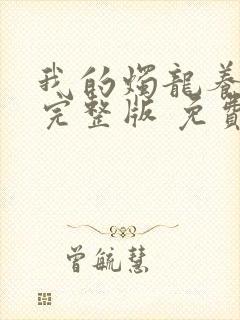 我的燭龍養
完整版 免費
曾毓慧